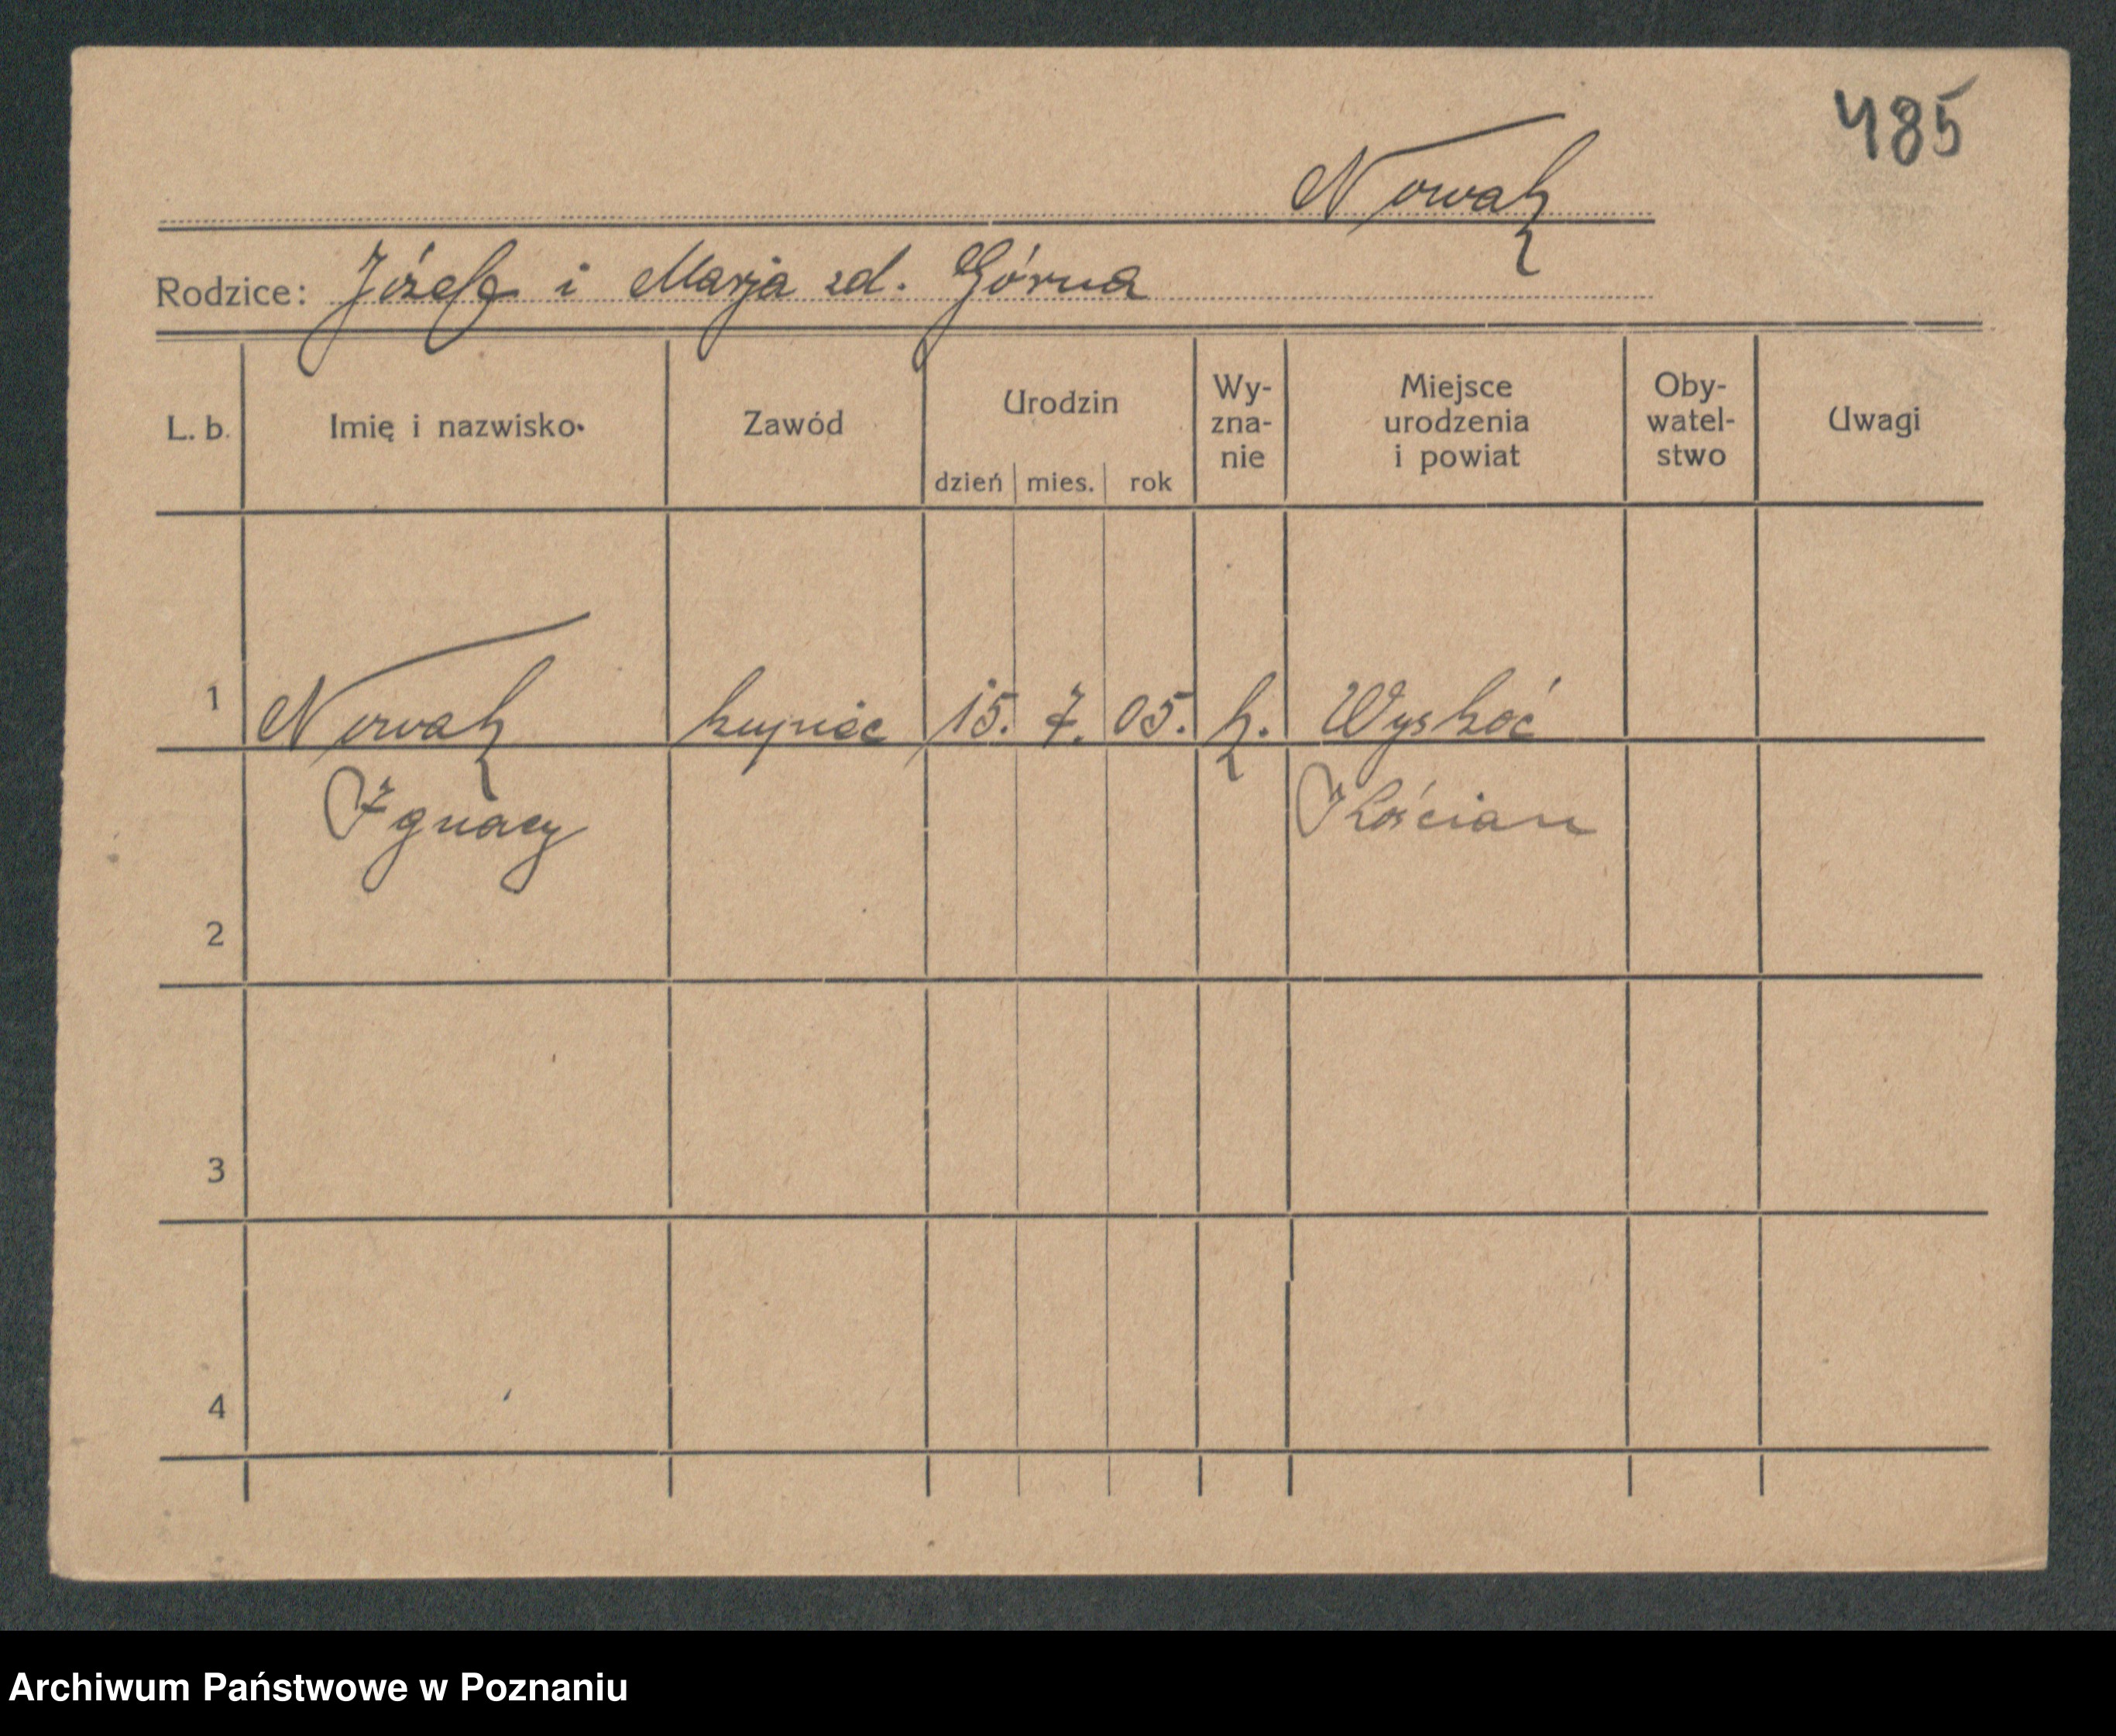 485
Nowak
Rodzice: Józef i Marja zd. Górna
L. b. Imię i nazwisko. Zawód Urodzin Wy-zna-nie Miejsce urodzenia i powiat Oby-watel-stwo Uwagi
dzień mies. rok
1 Nowak kupiec 15. 7. 05. k. Wyskoć
Ignacy Kościan
2
3
4
Archiwum Państwowe w Poznaniu